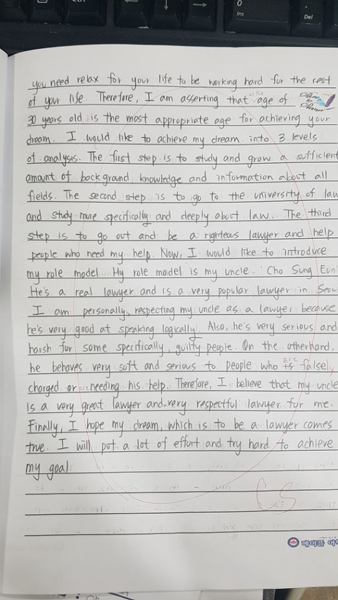 you need relax for your life to be working hard for the rest
of your life. Therefore, I am asserting that age of
30 years old is the most appropriate age for achieving your
dream. I would like to achieve my dream into 3 levels
of analysis. The first step is to study and grow a sufficient
amount of background knowledge and information about all
fields. The second step is to go to the university of law
and study more specifically and deeply about law. The third
step is to go out and be a righteous lawyer and help
people who need my help. Now, I would like to introduce
my role model. My role model is my uncle. Cho Sung Eun
He's a real lawyer and is a very popular lawyer in Seou
I am personally, respecting my uncle as a lawyer because
he's very good at speaking logically. Also, he's very serious and
harsh for some specifically, guilty people. On the otherhand,
he behaves very soft and serious to people who is falsel
charged or needing his help. Therefore, I believe that my uncle
is a very great lawyer and very respectful lawyer for me.
Finally, I hope my dream, which is to be a lawyer comes
true. I will put a lot of effort and try hard to achieve
my goal.